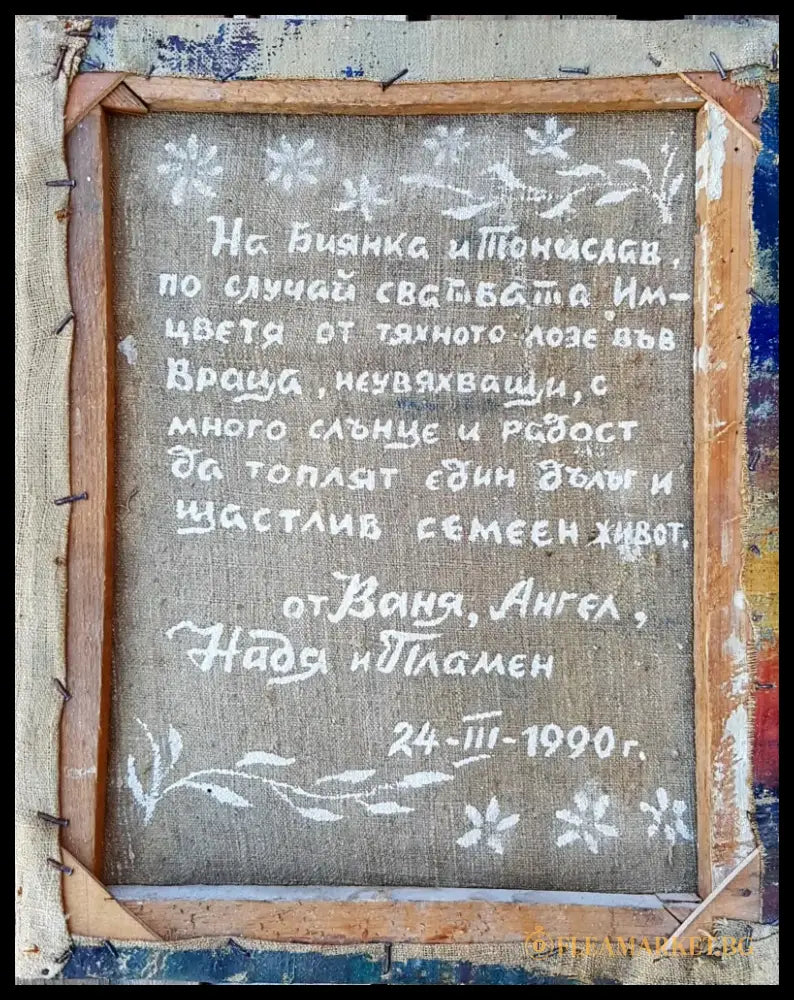 На Биянка и Тонислав,
по случай сватбата Им-
цветя от тяхното лозе във
Враца, неувяхващи, с
много слънце и радост
да топлят един дълъг и
щастлив семеен живот.
от Ваня, Ангел,
Надя и Пламен
24-III-1990 г.
FLEAMARKET.BG